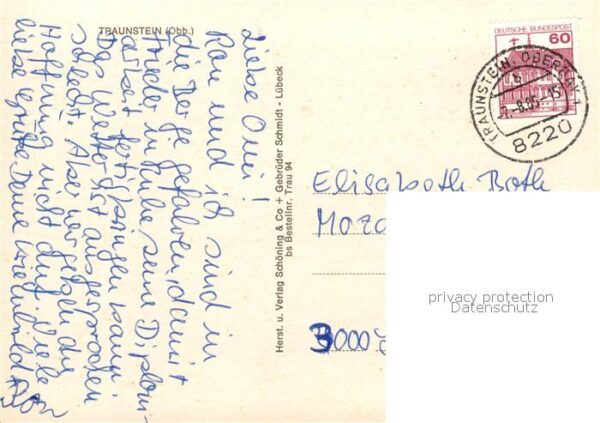 TRAUNSTEIN (Obb.)
Liebe Omi!
Rau und ich sind in
die Berge gefahren, damit
Frieder in Ruhe seine Diplom-
arbeit fertigbringen kann.
Das Wetter ist ausgesprochen
schlecht. Aber wir geben die
Hoffnung nicht auf. Viele
liebe Grüße Deine
Herst. u. Verlag Schöning & Co + Gebrüder Schmidt - Lübeck
bs Bestellnr. Trau 94
DEUTSCHE BUNDESPOST
60
TRAUNSTEIN, OBERBAY 1
8220
Elisabeth Both
Moza
3000
privacy protection
Datenschutz